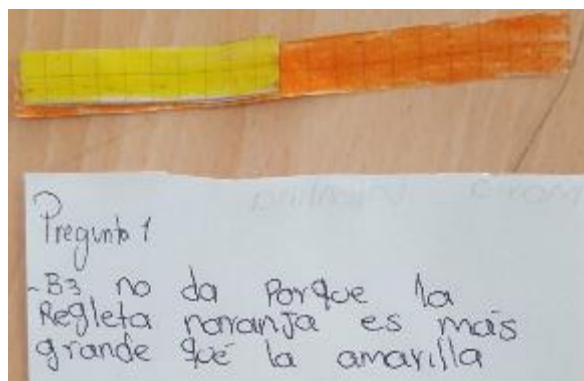 Pregunta 1
-B3 no da Porque la
Regleta naranja es más
grande que la amarilla